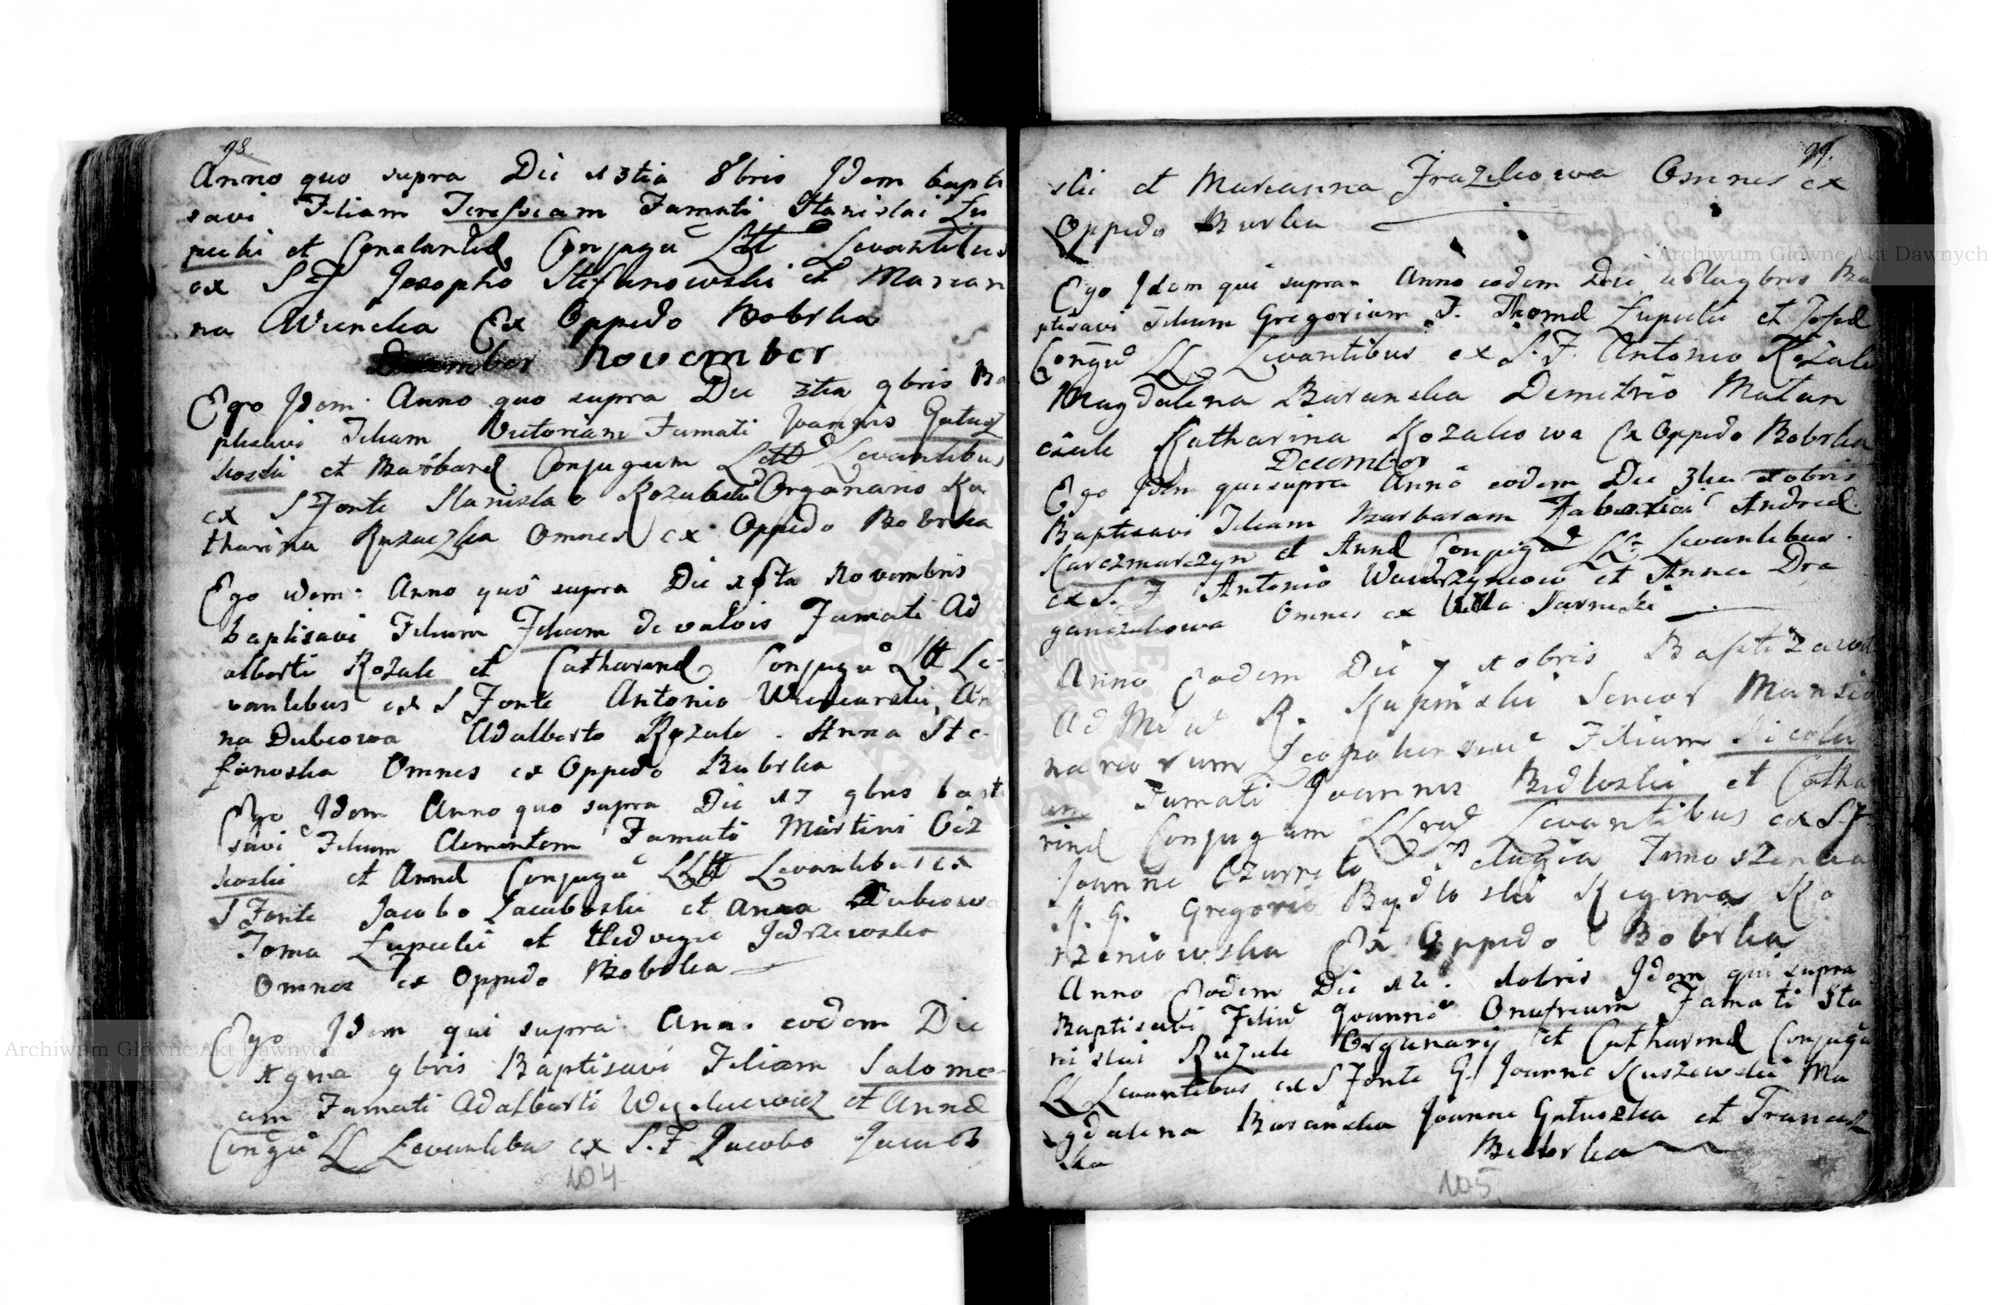 98.
Anno quo supra Die 13tia 8bris Idem bapti
savi Filiam Teressiam Famati Stanislai Łu
peckі et Conjugu Levantibus
ex S F Josepho Stefanowski et Marian
na Ex Oppido Bobrka
November
Ego Idem Anno quo supra Die 3tia 9bris Ba
ptisavi Filiam Victoriam Famati Joannis Gałusz
koski et Barbara Conjugum Levantibus
ex S Fonte Stanislao Organario Ka
tharina Omnes ex Oppido Bobrka
Ego idem Anno quo supra Die Novembris
baptisavi Filium Filiam de valvis Famati Ad
alberti Rozale et Catharina Conjugu Le-
vantibus ex S Fonte Antonio An
na Dubiowa Adalberto Rozale Anna Ste-
fanoska Omnes ex Oppido Bobrka
Ego Idem Anno quo supra Die 17 9bris bapti
savi Filium Clementem Famati Martini
koski et Anna Conjugu Levantibus ex
S Fonte Jacobo Jacuboski et Anna Dubiowa
Toma Łupecki et Hedvigie Jedrzewska
Omnes ex Oppido Bobrka
Ego Idem qui supra Anno eodem Die
9bris Baptisavi Filiam Salome-
am Famati Adalberti et Anna
Conjgu LL Levantibus ex S. F. Jacobo Jacub
104
99.
ski et Marianna Frazikowa Omnes ex
Oppido Burka
Ego Idem qui supra Anno eodem Die 9bris Ba
ptisavi Filium Gregorium F. Thoma Łupecki et
Conjgu LL Levantibus ex S. F. Antonio Rozale
Magdalena Baranska Demetrio Matan
Katharina Kozakowa Ex Oppido Bobrka
December
Ego Idem qui supra Anno eodem Die xobris
Baptisavi Filiam Barbaram Andrea
Karczmarczyn et Anna Conjugu LL Levantibus
ex S. F Antonio Wawrzynow et Anna Dra
ganczukowa Omnes ex Villa
Anno Eodem Die 7 xobris Baptizavit
R. Senior Mansio
nariorum Filium Nicola
um Famati Joannis Bidłoski et Catha
rina Conjugum Levantibus ex S. F.
Joanne Pelagia Timoszenka
Gregorio Bydłoski Regina Ko
rzeniowska Ex Oppido Bobrka
Anno Eodem Die xobris Idem qui supra
Baptisavi Filiu Joanne Onufrium Famati Sta
nislai Rozale Organarij et Catharina Conjugu
LL Levantibus ex S Fonte G. Joanne Ma
gdalena Baranska Joanne Gałuszka et Francisz
ka Bobrka
105
Archiwum Główne Akt Dawnych
Archiwum Główne Akt Dawnych